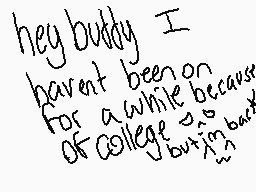 hey buddy I
havent been on
for a while because
of college
but im back